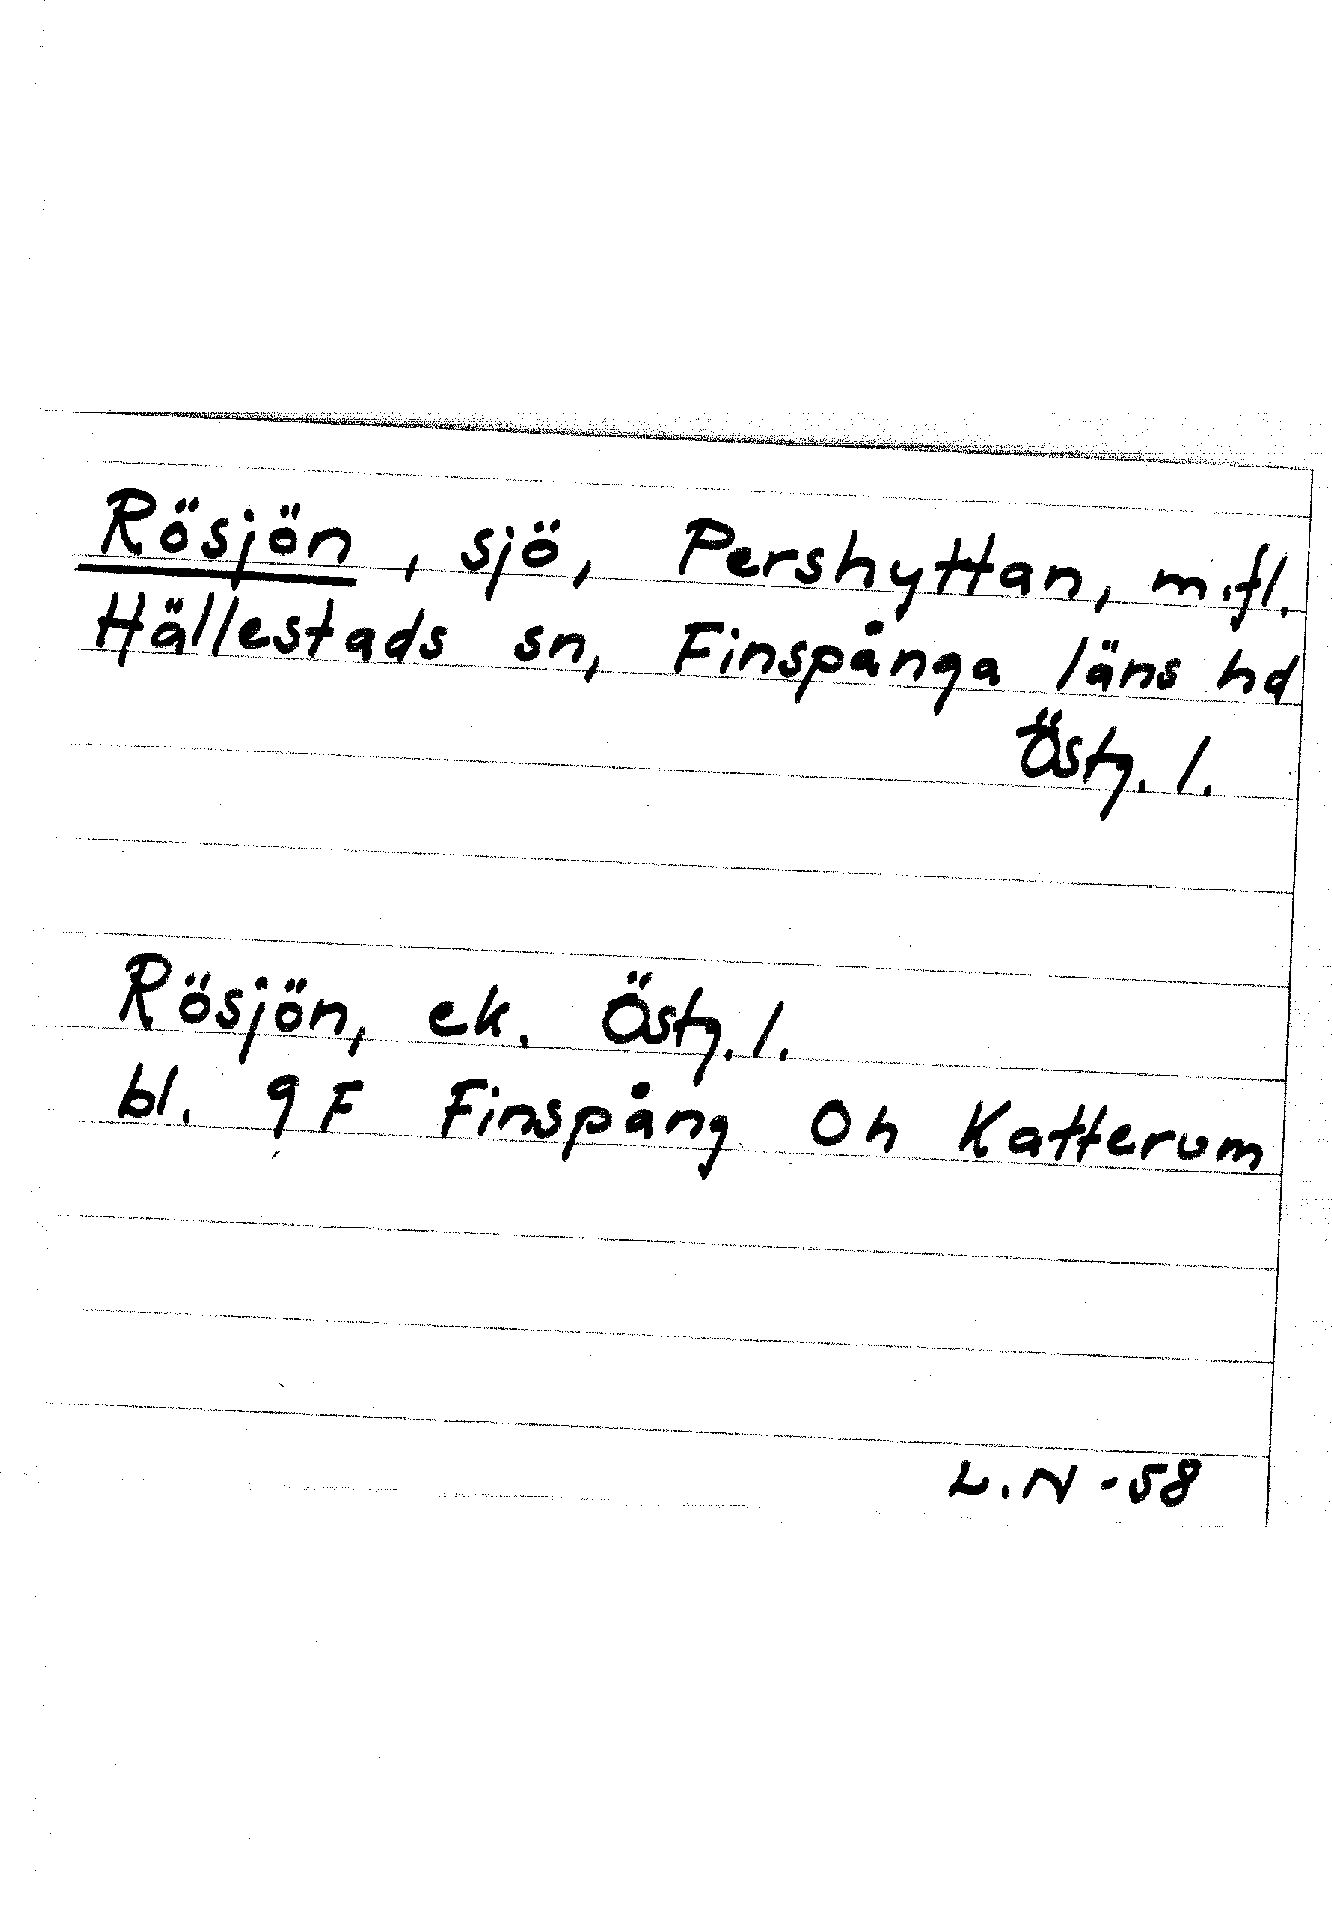 Rösjön, sjö, Pershyttan, m.fl.
Hällestads sn, Finspånga läns hd
Östg. l.
Rösjön, ek. Östg. l.
bl. 9F Finspång 0h Katterum
L.N -58